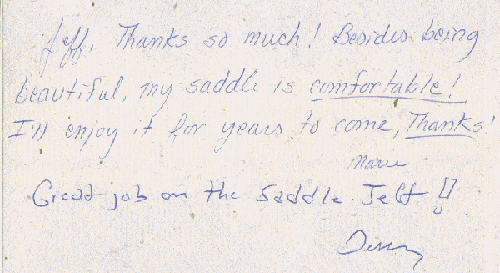 Jeff, Thanks so much! Besides being
beautiful, my saddle is comfortable!
I'll enjoy it for years to come, Thanks!
Great job on the Saddle Jeff!!